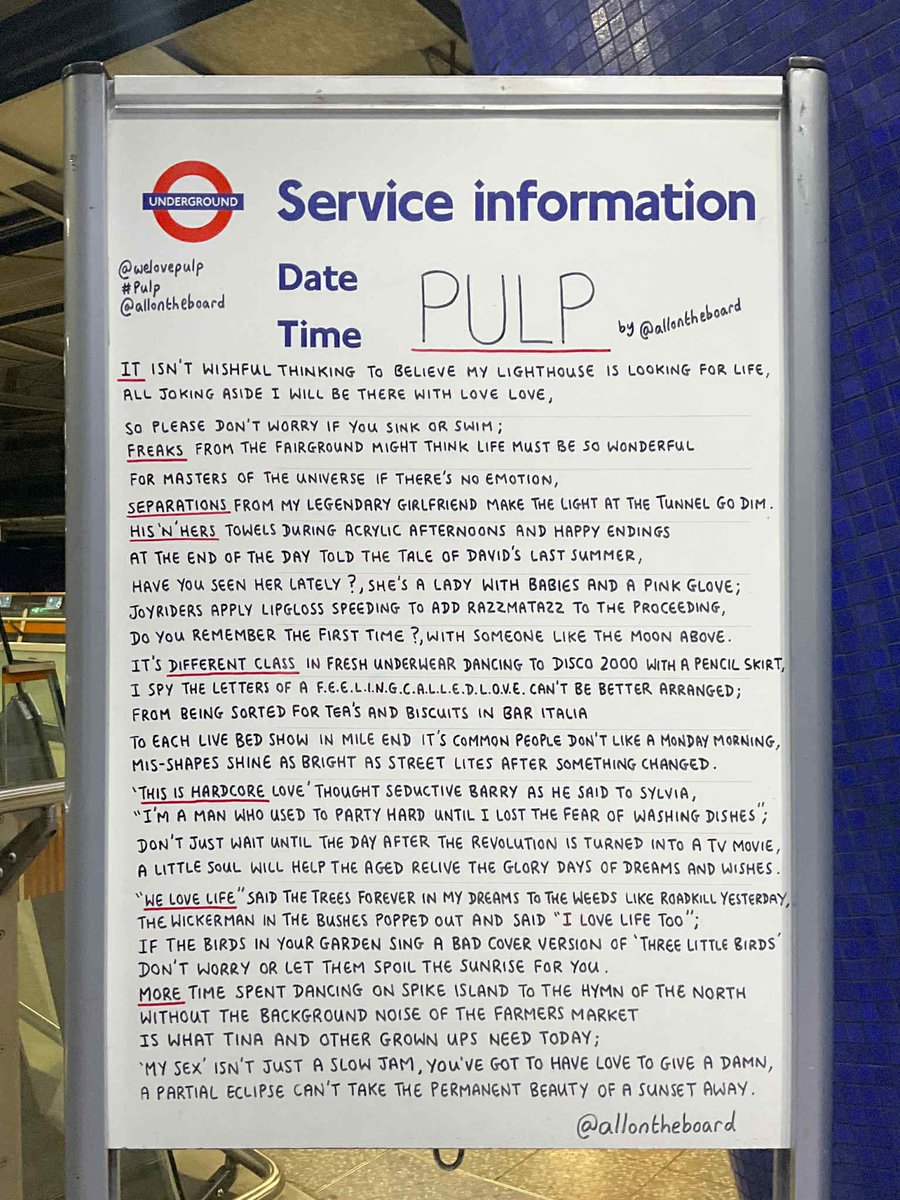 UNDERGROUND
Service information
@welovepulp
#Pulp
@allontheboard
Date
Time
PULP
by @allontheboard
IT ISN'T WISHFUL THINKING TO BELIEVE MY LIGHTHOUSE IS LOOKING FOR LIFE,
ALL JOKING ASIDE I WILL BE THERE WITH LOVE LOVE,
SO PLEASE DON'T WORRY IF YOU SINK OR SWIM;
FREAKS FROM THE FAIRGROUND MIGHT THINK LIFE MUST BE SO WONDERFUL
FOR MASTERS OF THE UNIVERSE IF THERE'S NO EMOTION,
SEPARATIONS FROM MY LEGENDARY GIRLFRIEND MAKE THE LIGHT AT THE TUNNEL GO DIM.
HIS 'N' HERS TOWELS DURING ACRYLIC AFTERNOONS AND HAPPY ENDINGS
AT THE END OF THE DAY TOLD THE TALE OF DAVID'S LAST SUMMER,
HAVE YOU SEEN HER LATELY?, SHE'S A LADY WITH BABIES AND A PINK GLOVE;
JOYRIDERS APPLY LIPGLOSS SPEEDING TO ADD RAZZMATAZZ TO THE PROCEEDING,
DO YOU REMEMBER THE FIRST TIME?, WITH SOMEONE LIKE THE MOON ABOVE.
IT'S DIFFERENT CLASS IN FRESH UNDERWEAR DANCING TO DISCO 2000 WITH A PENCIL SKIRT,
I SPY THE LETTERS OF A F.E.E.L.I.N.G.C.A.L.L.E.D.L.O.V.E. CAN'T BE BETTER ARRANGED;
FROM BEING SORTED FOR TEA'S AND BISCUITS IN BAR ITALIA
TO EACH LIVE BED SHOW IN MILE END IT'S COMMON PEOPLE DON'T LIKE A MONDAY MORNING,
MIS-SHAPES SHINE AS BRIGHT AS STREET LITES AFTER SOMETHING CHANGED.
'THIS IS HARDCORE LOVE' THOUGHT SEDUCTIVE BARRY AS HE SAID TO SYLVIA,
"I'M A MAN WHO USED TO PARTY HARD UNTIL I LOST THE FEAR OF WASHING DISHES";
DON'T JUST WAIT UNTIL THE DAY AFTER THE REVOLUTION IS TURNED INTO A TV MOVIE,
A LITTLE SOUL WILL HELP THE AGED RELIVE THE GLORY DAYS OF DREAMS AND WISHES.
"WE LOVE LIFE" SAID THE TREES FOREVER IN MY DREAMS TO THE WEEDS LIKE ROADKILL YESTERDAY,
THE WICKERMAN IN THE BUSHES POPPED OUT AND SAID "I LOVE LIFE TOO";
IF THE BIRDS IN YOUR GARDEN SING A BAD COVER VERSION OF 'THREE LITTLE BIRDS'
DON'T WORRY OR LET THEM SPOIL THE SUNRISE FOR YOU.
MORE TIME SPENT DANCING ON SPIKE ISLAND TO THE HYMN OF THE NORTH
WITHOUT THE BACKGROUND NOISE OF THE FARMERS MARKET
IS WHAT TINA AND OTHER GROWN UPS NEED TODAY;
'MY SEX' ISN'T JUST A SLOW JAM, YOU'VE GOT TO HAVE LOVE TO GIVE A DAMN,
A PARTIAL ECLIPSE CAN'T TAKE THE PERMANENT BEAUTY OF A SUNSET AWAY.
@allontheboard